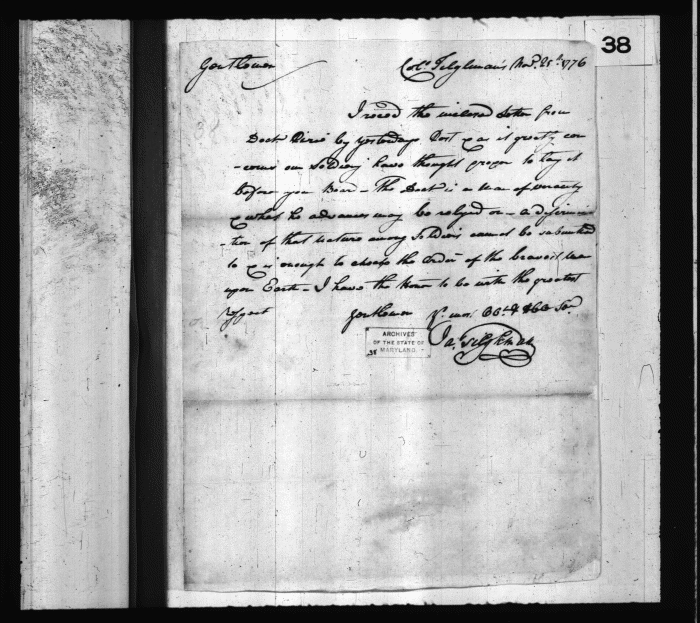 38
Gentlemen
Col. Tilghman's Nov. 25th 1776
I reced the inclosed Letter from
Doct. by yesterdays Post & as it greatly con
-cerns our Soldiery have thought proper to lay it
before your Board - The Doct. is a Man of veracity
& what he advances may be relyed on - a distinc
-tion of that nature among Soldiers cannot be submitted
to & is enough to the Ardor of the bravest Men
upon Earth - I have the Honor to be with the greatest
Respect
Gentlemen Yr. mo. Obt. & Hble St.
Ja. Tilghman
ARCHIVES
OF THE STATE OF
MARYLAND.
38